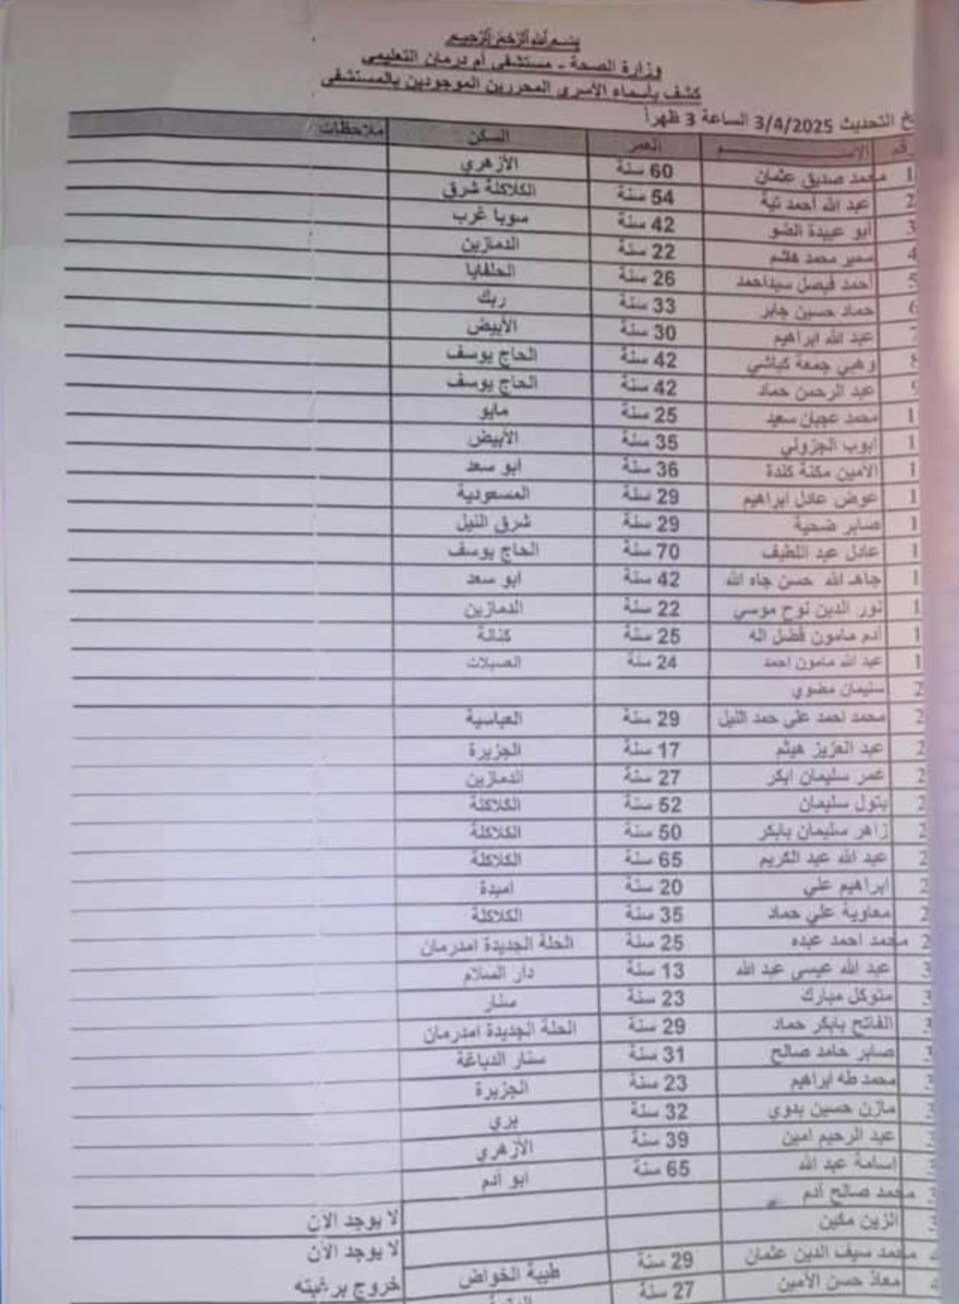 بسم الله الرحمن الرحيم
وزارة الصحة - مستشفى أم درمان التعليمي
كشف بأسماء الأسرى المحررين الموجودين بالمستشفى
التحديث 3/4/2025 الساعة 3 ظهراً
الاســـــــم العمر السكن ملاحظات
1 محمد صديق عثمان 60 سنة الأزهري
2 عبد الله أحمد تية 54 سنة الكلاكلة شرق
3 أبو عبيدة الضو 42 سنة سوبا غرب
4 سمير محمد هاشم 22 سنة الدمازين
5 أحمد فيصل سيداحمد 26 سنة الحلفايا
6 حماد حسين جابر 33 سنة ربك
7 عبد الله ابراهيم 30 سنة الأبيض
8 وهبي جمعة كباشي 42 سنة الحاج يوسف
9 عبد الرحمن حماد 42 سنة الحاج يوسف
1 محمد عجبان سعيد 25 سنة مايو
1 ايوب الجزولي 35 سنة الأبيض
1 الأمين مكنة كندة 36 سنة ابو سعد
1 عوض عادل ابراهيم 29 سنة المسعودية
1 صابر ضحية 29 سنة شرق النيل
1 عادل عبد اللطيف 70 سنة الحاج يوسف
1 جاهد الله حسن جاه الله 42 سنة ابو سعد
1 نور الدين نوح موسي 22 سنة الدمازين
1 أدم مامون فضل اله 25 سنة كنانة
1 عبد الله مامون احمد 24 سنة العسيلات
2 سليمان مضوي
2 محمد احمد علي حمد النيل 29 سنة العباسية
2 عبد العزيز هيثم 17 سنة الجزيرة
2 عمر سليمان ابكر 27 سنة الدمازين
2 بتول سليمان 52 سنة الكلاكلة
2 زاهر سليمان بابكر 50 سنة الكلاكلة
2 عبد الله عبد الكريم 65 سنة الكلاكلة
2 ابراهيم علي 20 سنة امبدة
2 معاوية علي حماد 35 سنة الكلاكلة
2 محمد احمد عبده 25 سنة الحلة الجديدة امدرمان
3 عبد الله عيسى عبد الله 13 سنة دار السلام
3 متوكل مبارك 23 سنة سنار
3 الفاتح بابكر حماد 29 سنة الحلة الجديدة امدرمان
3 صابر حامد صالح 31 سنة سنار الدباغة
3 محمد طه ابراهيم 23 سنة الجزيرة
3 مازن حسين بدوي 32 سنة بري
3 عبد الرحيم امين 39 سنة الأزهري
3 اسامة عبد الله 65 سنة ابو أدم
3 محمد صالح أدم
3 الزين مكين لا يوجد الأن
4 محمد سيف الدين عثمان 29 سنة طيبة الخواض لا يوجد الأن
4 معاذ حسن الأمين 27 سنة خروج برغبته